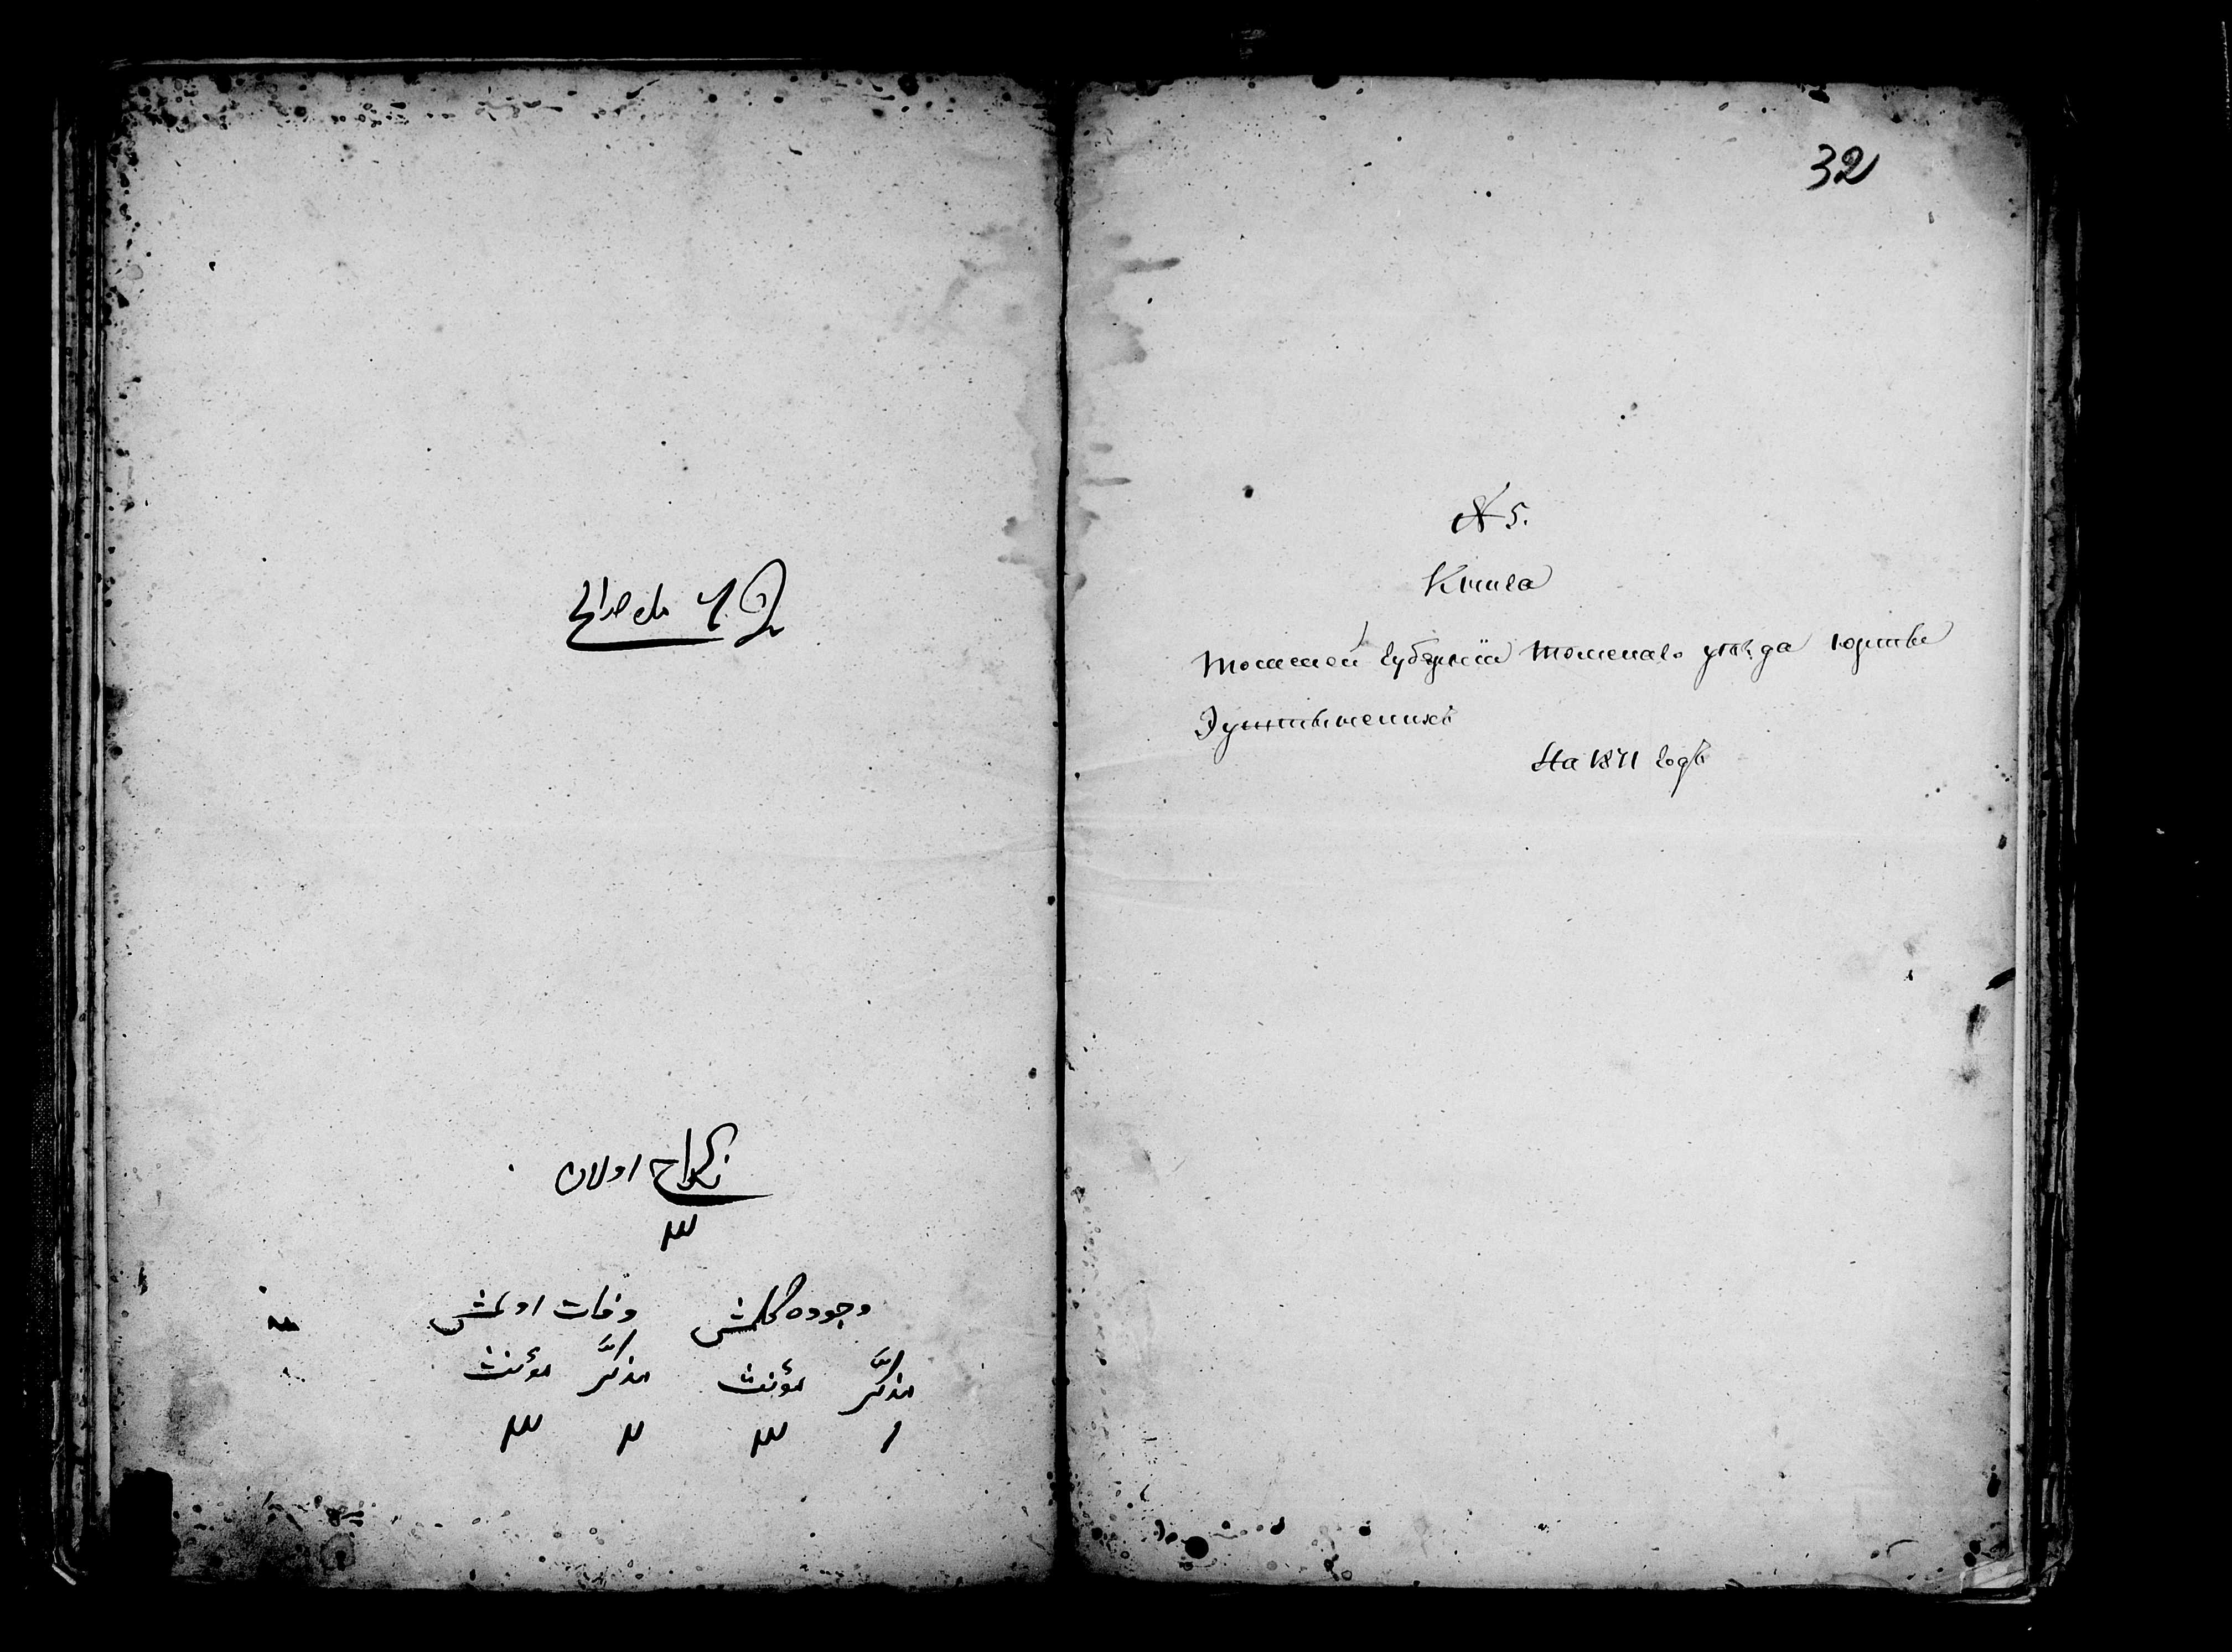 نكاح اولان
٣
وجوده كلمش وفات اولمش
مذكّر مؤنث مذكّر مؤنث
١ ٣ ٢ ٣
32
№ 5.
Книга
Томской Губерніи Томскаго уѣзда юрты
На 1871 годъ